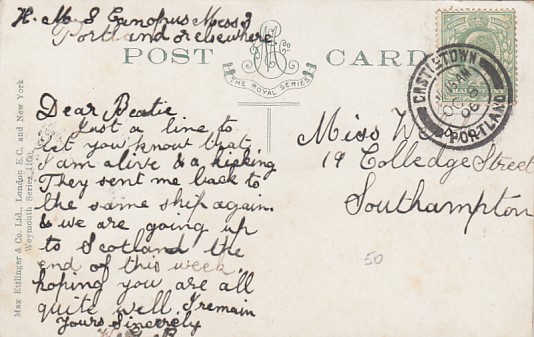 H. M. S Canopus Mess 3
Portland or elsewhere
POST CARD
THE ROYAL SERIES
Dear Beatie
Just a line to
let you know that
I am alive & a kicking
They sent me back to
the same ship again.
& we are going up
to Scotland the
end of this week
hoping you are all
quite well. I remain
Yours Sincerely
Miss W
19 Colledge Street
Southampton
CASTLETOWN
PORTLAND
50
Max Ettlinger & Co. Ltd., London E.C. and New York
Weymouth Series